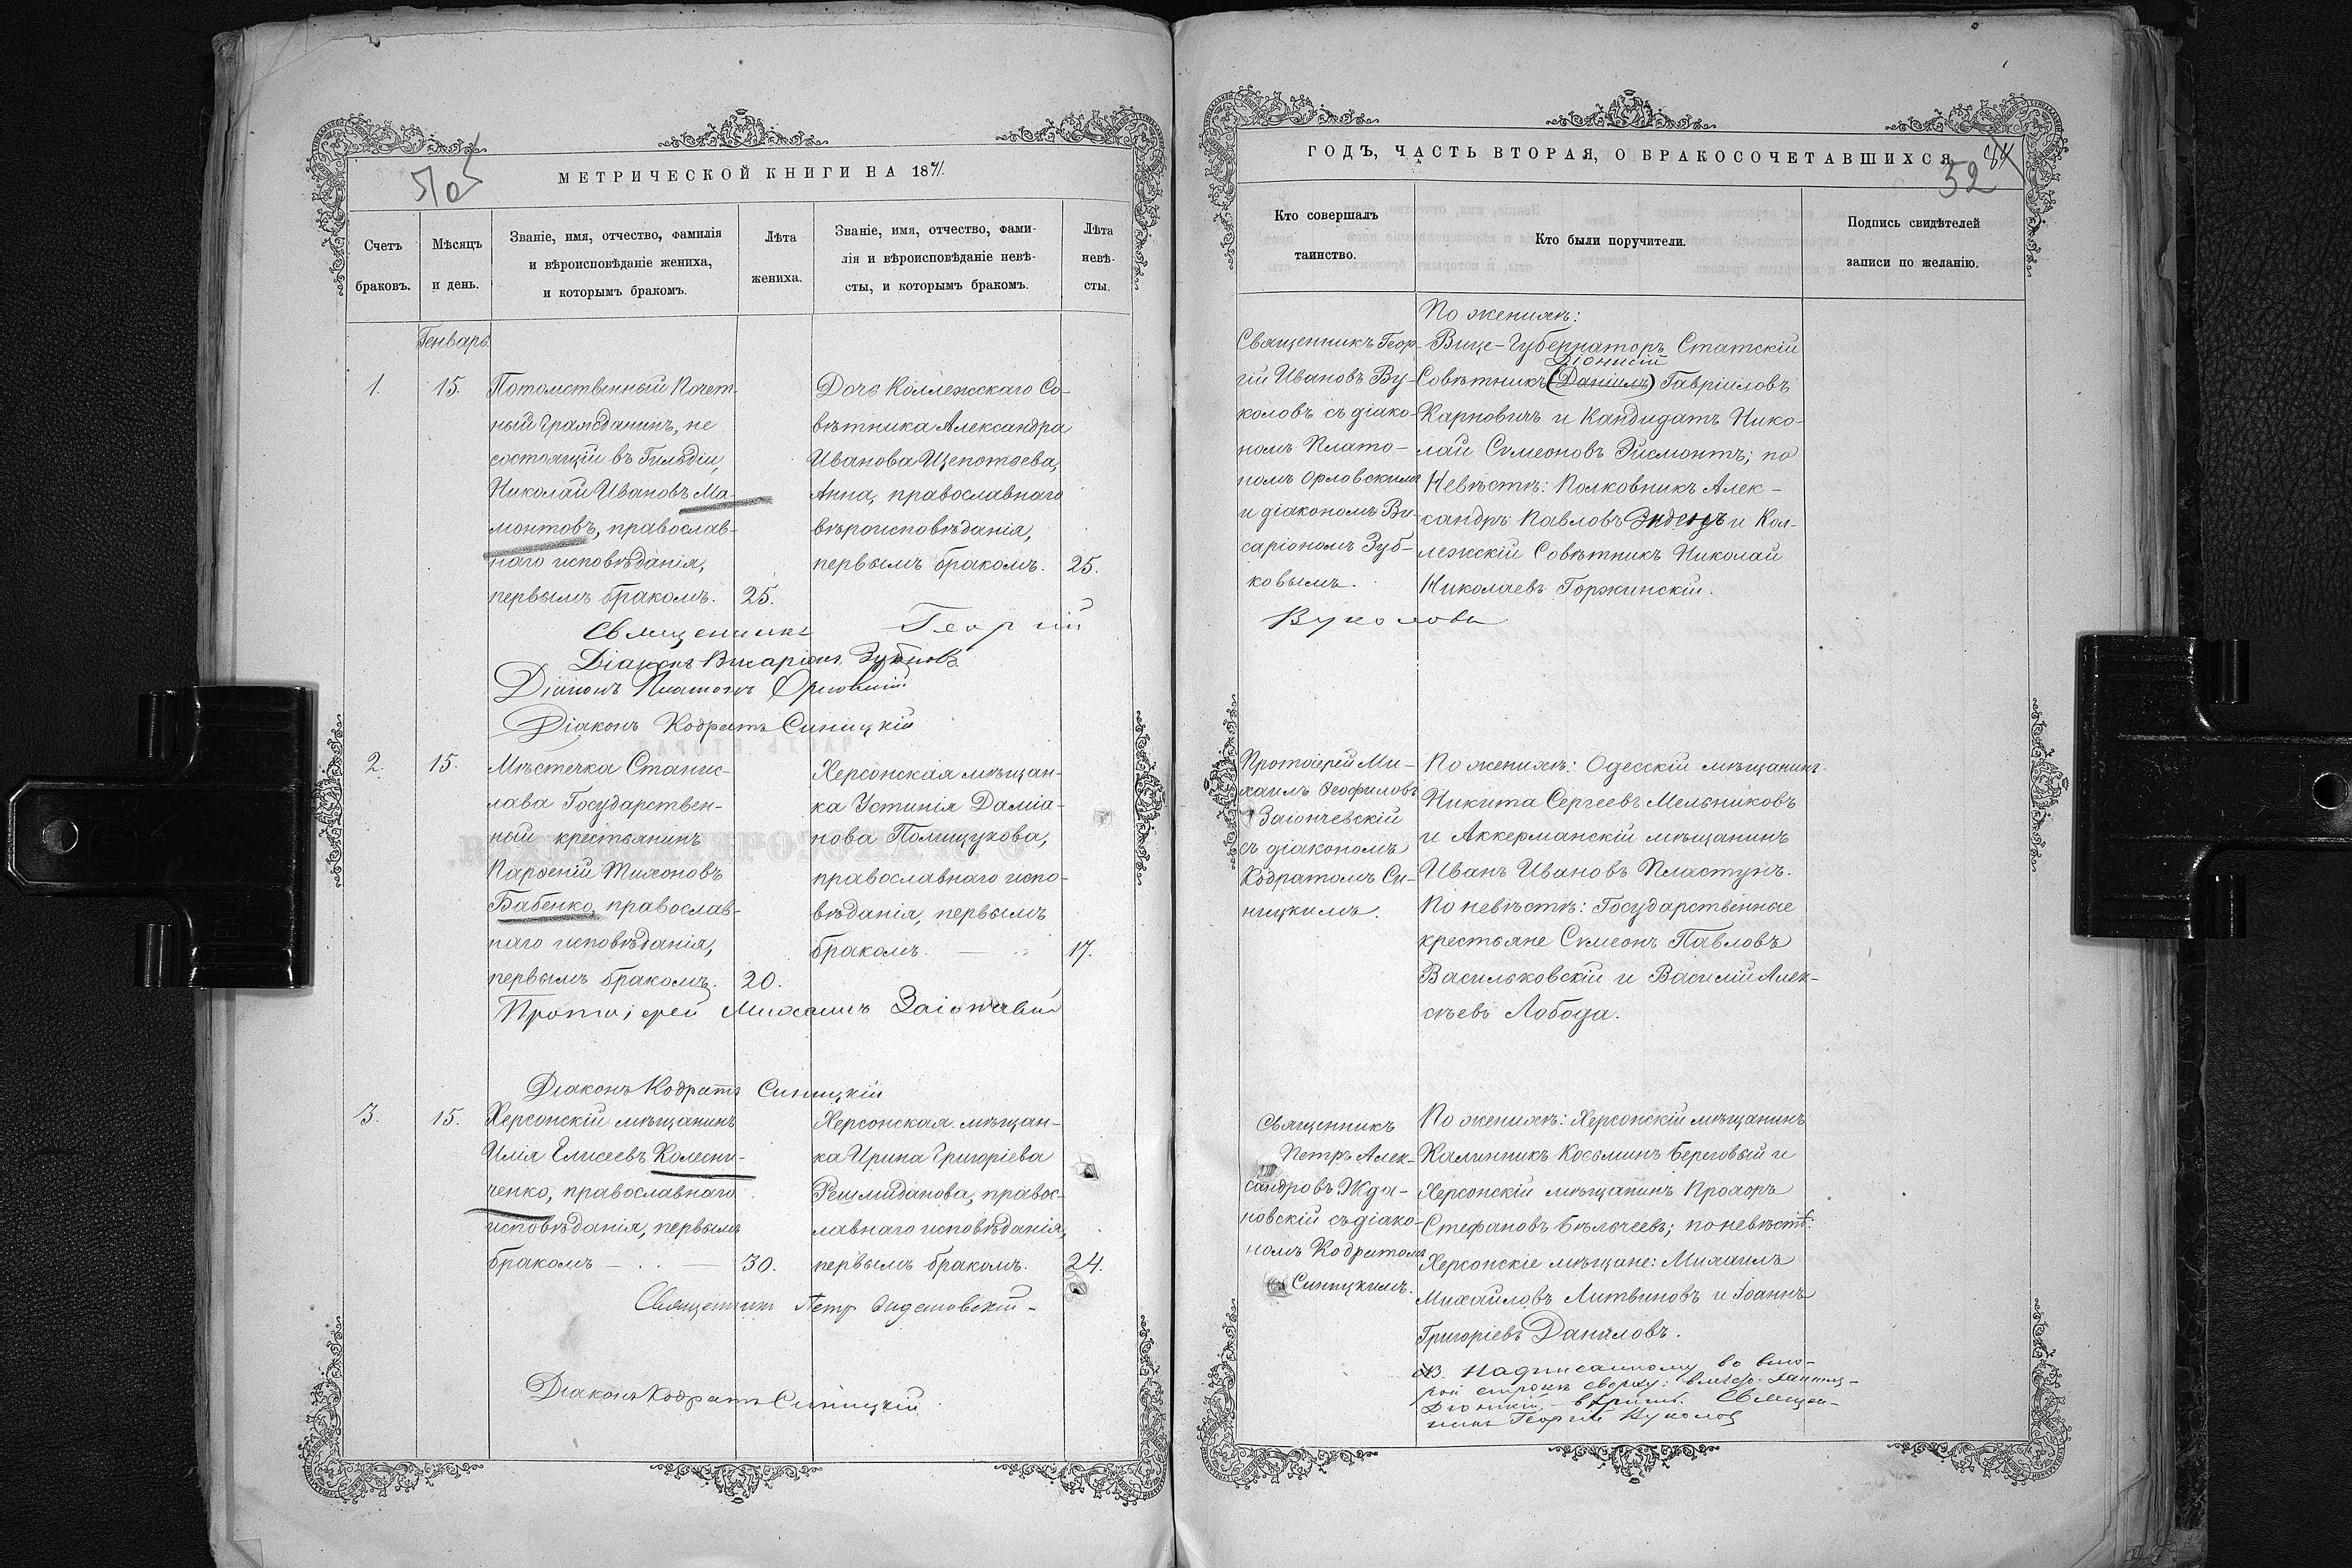 505
МЕТРИЧЕСКОЙ КНИГИ НА 1871.
Счетъ браковъ.
Мѣсяцъ и день.
Званіе, имя, отчество, фамилія
и вѣроисповѣданіе жениха,
и которымъ бракомъ.
Лѣта
жениха.
Званіе, имя, отчество, фами-
лія и вѣроисповѣданіе невѣ-
сты, и которымъ бракомъ.
Лѣта
невѣ-
сты.
Генварь
1.
15.
Потомственный Почет-
ный Гражданинъ, не
состоящій въ Гильдіи,
Николай Ивановъ Ма-
монтовъ, православ-
наго исповѣданія,
первымъ бракомъ.
25.
Дочь Коллежскаго Со-
вѣтника Александра
Иванова Щепотьева,
Анна, православнаго
вѣроисповѣданія,
первымъ бракомъ.
25.
Священникъ Георгій
Діаконъ Висаріонъ Зубковъ
Діаконъ Платонъ Орловскій
Діаконъ Кодратъ Синицкій
2.
15.
Мѣстечка Станис-
лава Государствен-
ный крестьянинъ
Парѳеній Тихоновъ
Бабенко, православ-
наго исповѣданія,
первымъ бракомъ.
20.
Херсонская мѣщан-
ка Устинія Даміа-
нова Полищукова,
православнаго испо-
вѣданія, первымъ
бракомъ.
17.
Протоіерей Михаилъ
Діаконъ Кодратъ Синицкій
3.
15.
Херсонскій мѣщанинъ
Илія Елисеевъ Колесни-
ченко, православнаго
исповѣданія, первымъ
бракомъ
30.
Херсонская мѣщан-
ка Ирина Григоріева
Решмиданова, правос-
лавнаго исповѣданія,
первымъ бракомъ.
24.
Священникъ Петръ Ждановскій
Діаконъ Кодратъ Синицкій
ГОДЪ, ЧАСТЬ ВТОРАЯ, О БРАКОСОЧЕТАВШИХСЯ
84
52
Кто совершалъ
таинство.
Кто были поручители.
Подпись свидѣтелей
записи по желанію.
Священникъ Геор-
гій Ивановъ Ву-
коловъ съ діако-
номъ Плато-
номъ Орловскимъ
и діакономъ Ви-
саріономъ Зуб-
ковымъ.
Вуколовъ
По женихѣ:
Вице-Губернаторъ Статскій
Діонисій
Совѣтникъ (Даніилъ) Гавріиловъ
Карновичъ и Кандидатъ Нико-
лай Сѵмеоновъ Эйсмонтъ; по
Невѣстѣ: Полковникъ Алек-
сандръ Павловъ и Кол-
лежскій Совѣтникъ Николай
Николаевъ Горжинскій.
Протоіерей Ми-
хаилъ Ѳеофиловъ
Заіончевскій
съ діакономъ
Кодратомъ Си-
ницкимъ.
По женихѣ: Одесскій мѣщанинъ
Никита Сергеевъ Мельниковъ
и Аккерманскій мѣщанинъ
Иванъ Ивановъ Пластунъ.
По невѣстѣ: Государственные
крестьяне Сѵмеонъ Павловъ
Васильковскій и Василій Алек-
сѣевъ Лобода.
Священникъ
Петръ Алек-
сандровъ Жда-
новскій съ діако-
номъ Кодратомъ
Синицкимъ.
По женихѣ: Херсонскій мѣщанинъ
Калинникъ Косьминъ Береговый и
Херсонскій мѣщанинъ Прохоръ
Стефановъ Бѣлочеевъ; по невѣстѣ:
Херсонскіе мѣщане: Михаилъ
Михайловъ Литвиновъ и Іоаннъ
Григоріевъ Даниловъ.
NB. Надписанному во вто-
рой строкѣ сверху: вмѣсто Даніилъ-
Діонисій - вѣрить. Священ-
никъ Георгій Вуколовъ